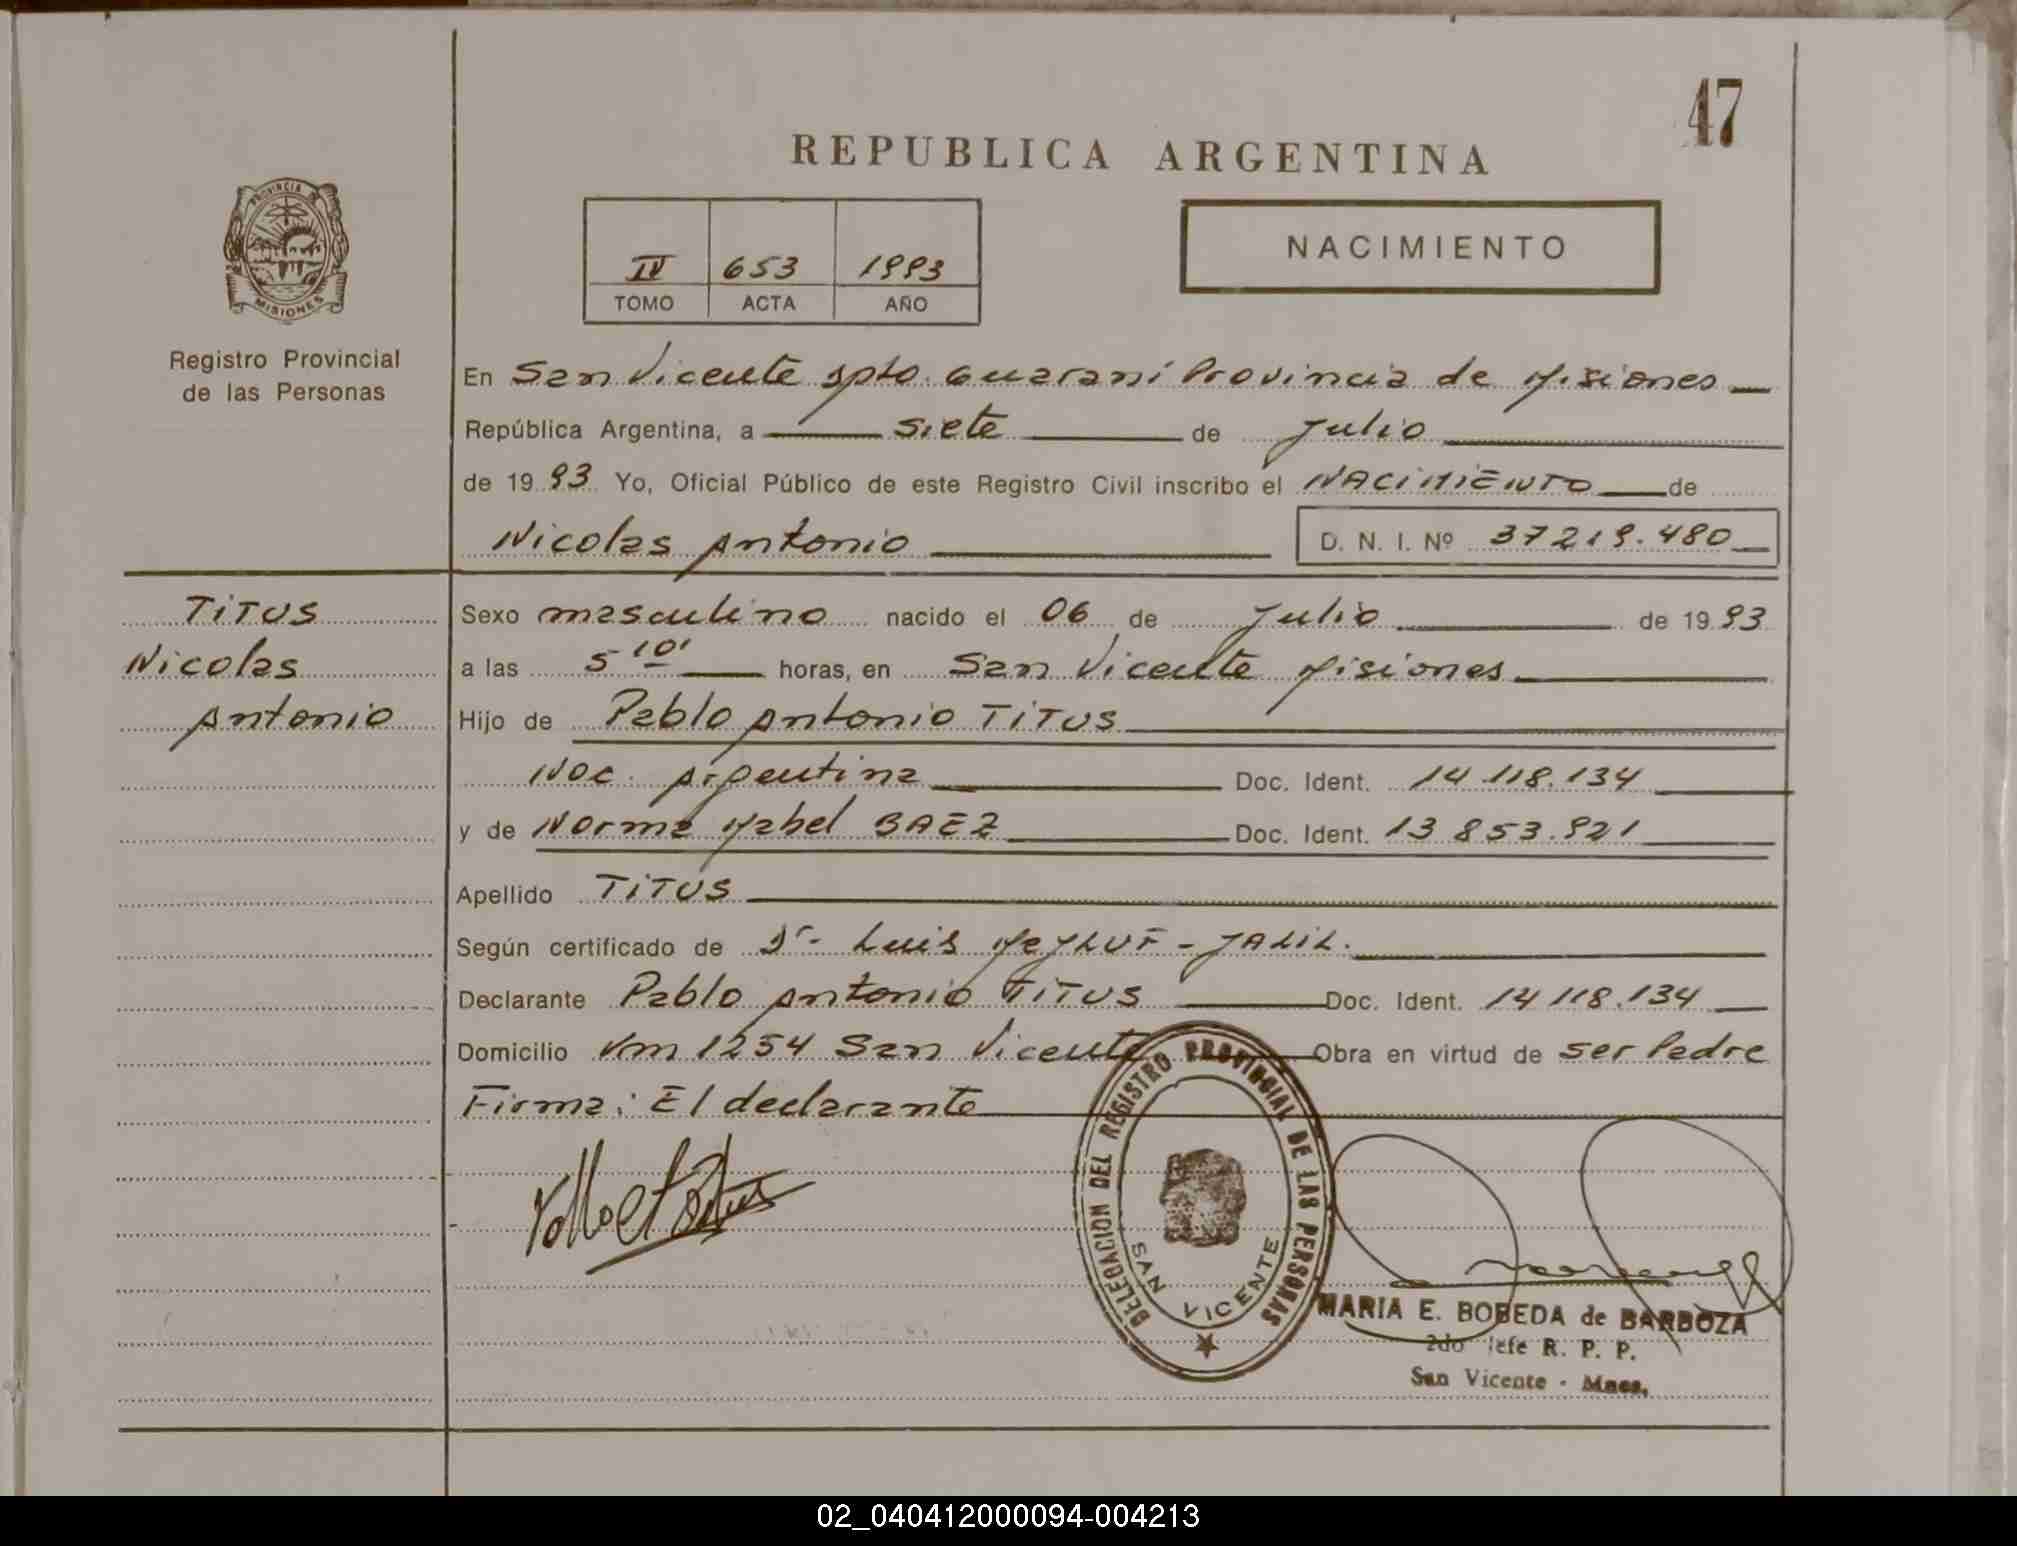 47
REPUBLICA ARGENTINA
PROVINCIA
MISIONES
Registro Provincial
de las Personas
IV 653 1993
TOMO ACTA AÑO
NACIMIENTO
En San Vicente Dpto. Guaraní Provincia de Misiones
República Argentina, a siete de Julio
de 1993 Yo, Oficial Público de este Registro Civil inscribo el NACIMIENTO de
Nicolas Antonio D. N. I. Nº 37219.480
TITUS
Nicolas
Antonio
Sexo masculino nacido el 06 de Julio de 1993
a las 5 10' horas, en San Vicente Misiones
Hijo de Pablo Antonio TITUS
Nac. Argentina Doc. Ident. 14.118.134
y de Norma Mabel BAEZ Doc. Ident. 13 853.921
Apellido TITUS
Según certificado de Dr- Luis - JALIL.
Declarante Pablo Antonio TITUS Doc. Ident. 14 118.134
Domicilio 1254 San Vicente Obra en virtud de ser Padre
Firma: El declarante
DELEGACION DEL REGISTRO PROVINCIAL DE LAS PERSONAS
SAN VICENTE
MARIA E. BOBEDA de BARBOZA
2do Jefe R. P. P.
San Vicente - Mnes.
02_040412000094-004213